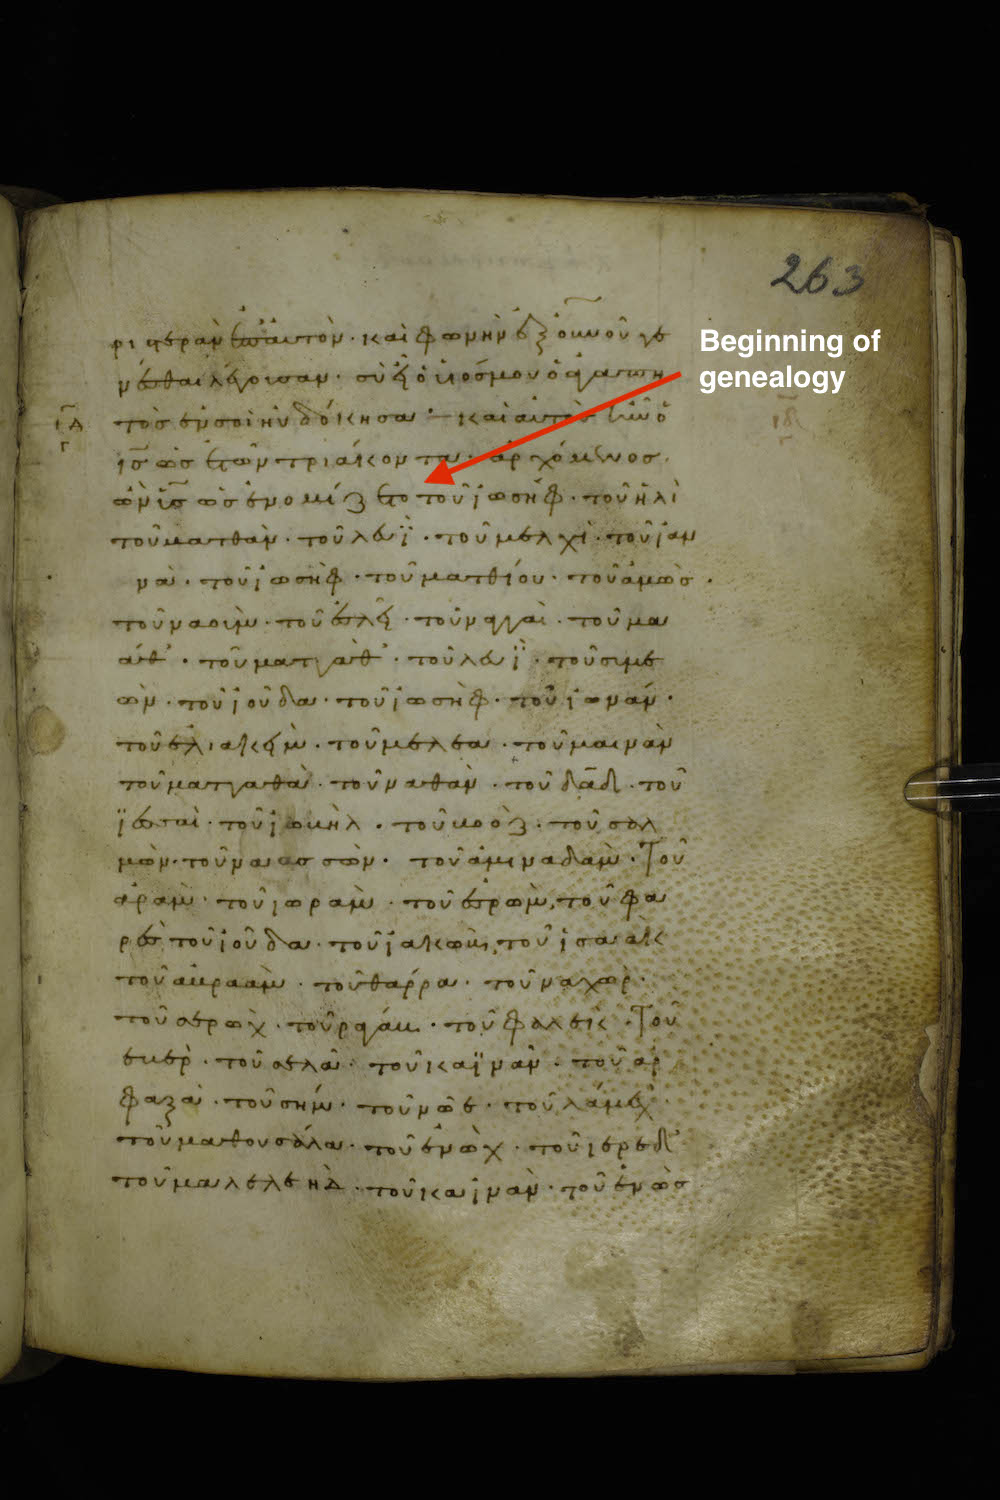 263
Beginning of
genealogy
ρι στερὰν ἐπ' αὐτὸν · καὶ φωνὴν ἐξ οὐνοῦ γε
νέσθαι λέγουσαν · σὺ εἶ ὁ υἱόσ μου ὁ ἀγαπη
τὸσ ἐν σοὶ ηὐδόκησα · καὶ αὐτὸσ ἦν ὁ
ισ ὡσ ἐτῶν τριάκοντα · ἀρχόμενοσ ·
ὢν υἱσ ὡσ ἐνομίζετο τοῦ ἰωσήφ · τοῦ ἡλὶ
τοῦ ματθὰν · τοῦ λευῒ · τοῦ μελχὶ · τοῦ ἰαν
νὰ · τοῦ ἰωσὴφ · τοῦ ματθίου · τοῦ ἀμὼσ ·
τοῦ ναοὺμ · τοῦ ἐσλεὶ · τοῦ ναγγαὶ · τοῦ μα
ὰθ · τοῦ ματταθ · τοῦ λευῒ · τοῦ σιμε
ὼν · τοῦ ἰούδα · τοῦ ἰωσὴφ · τοῦ ἰωνάν ·
τοῦ ἐλιακεὶμ · τοῦ μελεα · τοῦ μαινὰν
τοῦ ματταθὰ · τοῦ ναθὰν · τοῦ δαδ · τοῦ
ϊεσσαὶ · τοῦ ἰωβὴλ · τοῦ βοὸζ · τοῦ σαλ
μὼν · τοῦ ναασσὼν · τοῦ ἀμιναδὰμ · τοῦ
ἀρὰμ · τοῦ ἰωρὰμ · τοῦ ἐσρὼμ · τοῦ φα
ρὲσ τοῦ ἰούδα · τοῦ ἰακὼβ · τοῦ ἰσαὰκ
τοῦ ἀβραὰμ · τοῦ θάρρα · τοῦ ναχὼρ ·
τοῦ σερὼχ · τοῦ ῥαγάβ · τοῦ φαλὲκ · τοῦ
ἐβὲρ · τοῦ σελὰ · τοῦ καϊνὰν · τοῦ ἀρ
φαξὰ · τοῦ σήμ · τοῦ νῶε · τοῦ λάμεχ ·
τοῦ μαθουσάλα · τοῦ ἐνὼχ · τοῦ ἰερεδ
τοῦ μαλελεὴλ · τοῦ καϊνὰν · τοῦ ἐνὼσ